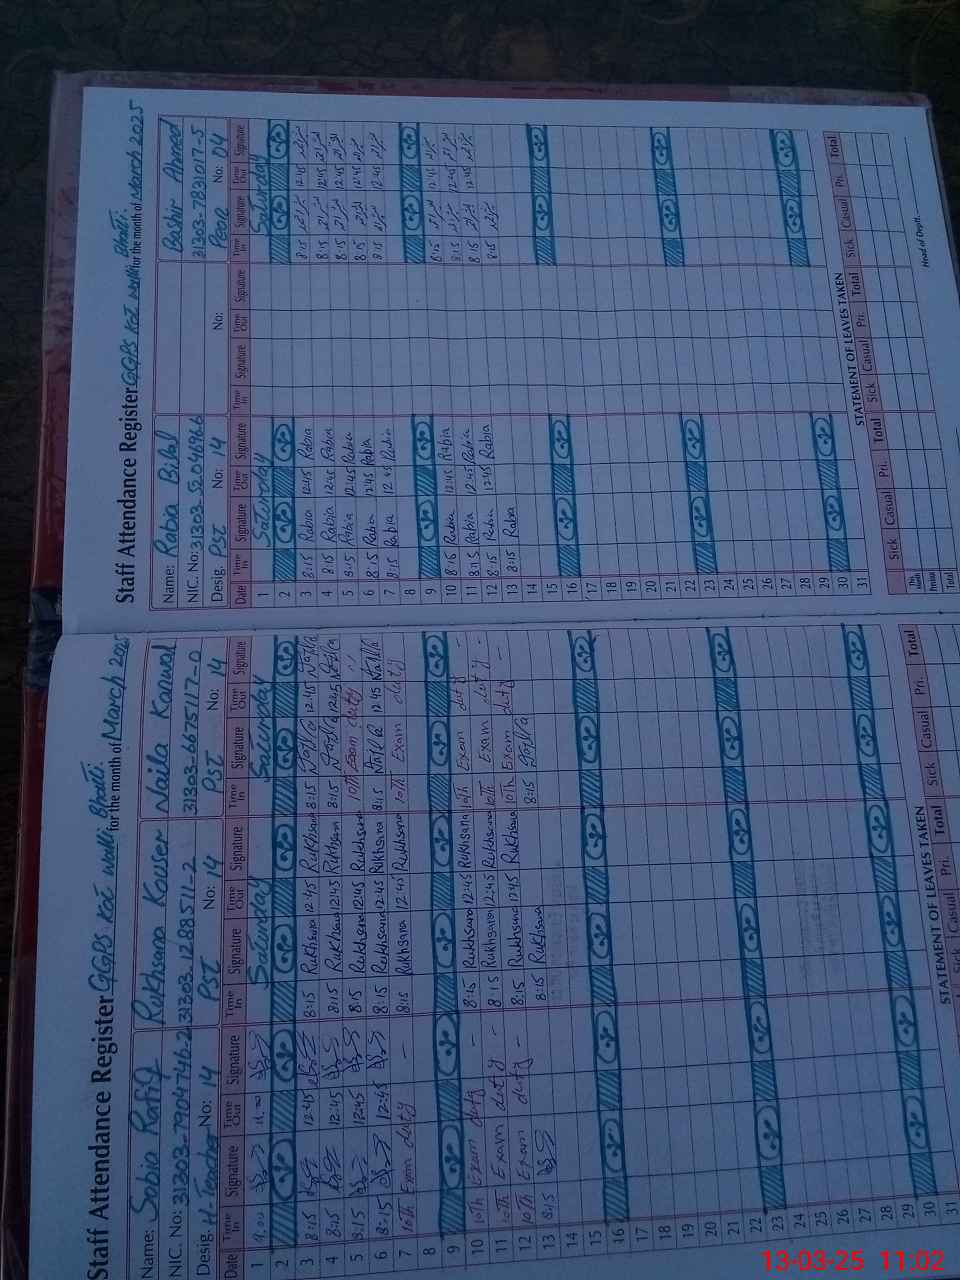 Staff Attendance Register GGPS Kot Bhatti. for the month of March 2025
Name: Sabia Rafiq Rukhsana Kouser Naila Kanwal
NIC. No: 31303-7904746-2 31303-1288511-2 31303-6675117-0
Desig. H. Teacher No: 14 PST No: 14 PST No: 14
Date Time In Signature Time Out Signature Time In Signature Time Out Signature Time In Signature Time Out Signature
1 9.00 11.00 Saturday Saturday
2
3 8:15 12:45 8:15 Rukhsana 12:45 Rukhsana 8:15 Naila 12:45 Naila
4 8:15 12:45 8:15 Rukhsana 12:45 Rukhsana 8:15 Naila 12:45 Naila
5 8:15 12:45 8:15 Rukhsana 12:45 Rukhsana 10th Exam duty
6 8:15 12:45 8:15 Rukhsana 12:45 Rukhsana 8:15 Naila 12:45 Naila
7 10th Exam duty – 8:15 Rukhsana 12:45 Rukhsana 10th Exam duty
8
9
10 10th Exam duty – 8:15 Rukhsana 12:45 Rukhsana 10th Exam duty –
11 10th Exam duty – 8:15 Rukhsana 12:45 Rukhsana 10th Exam duty –
12 10th Exam duty – 8:15 Rukhsana 12:45 Rukhsana 10th Exam duty –
13 8:15 8:15 Rukhsana 8:15 Naila
14
15
16
17
18
19
20
21
22
23
24
25
26
27
28
29
30
31
STATEMENT OF LEAVES TAKEN
Sick Casual Pri. Total Sick Casual Pri. Total
Staff Attendance Register GGPS Kot Bhatti. for the month of March 2025
Name: Rabia Bilal Bashir Ahmed
NIC. No: 31303-5204696-6 31303-7831017-5
Desig. PST No: 14 No: Peon No: 04
Date Time In Signature Time Out Signature Time In Signature Time Out Signature Time In Signature Time Out Signature
1 Saturday Saturday
2
3 8:15 Rabia 12:45 Rabia 8:15 12:45
4 8:15 Rabia 12:45 Rabia 8:15 12:45
5 8:15 Rabia 12:45 Rabia 8:15 12:45
6 8:15 Rabia 12:45 Rabia 8:15 12:45
7 8:15 Rabia 12:45 Rabia 8:15 12:45
8
9
10 8:15 Rabia 12:45 Rabia 8:15 12:45
11 8:15 Rabia 12:45 Rabia 8:15 12:45
12 8:15 Rabia 12:45 Rabia 8:15 12:45
13 8:15 Rabia 8:15
14
15
16
17
18
19
20
21
22
23
24
25
26
27
28
29
30
31
STATEMENT OF LEAVES TAKEN
Sick Casual Pri. Total Sick Casual Pri. Total Sick Casual Pri. Total
This Month
Previous
Total
Head of Deptt.
13-03-25 11:02